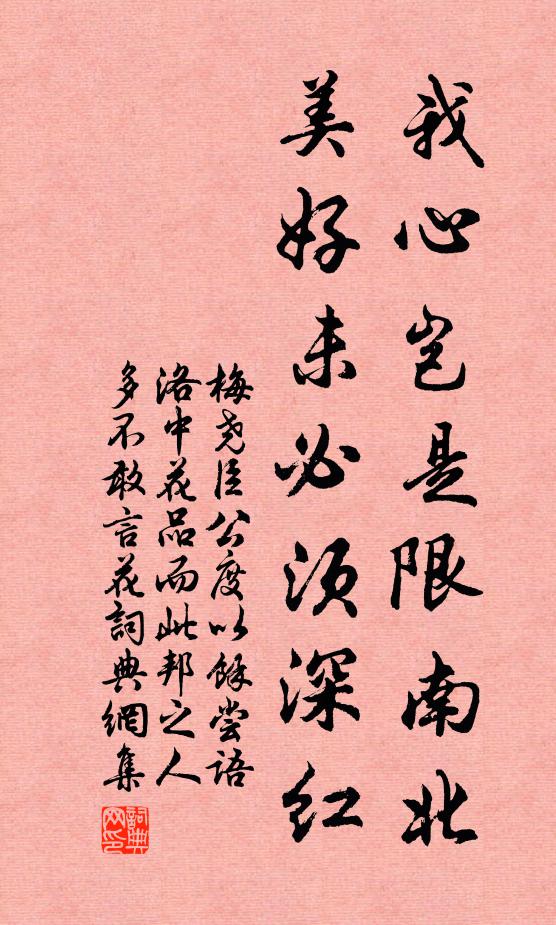 我心岂是限南北
美好未必须深红
梅尧臣公度以餘尝语
洛中花品而此邦之人
多不敢言花詞典網集
詞典网印